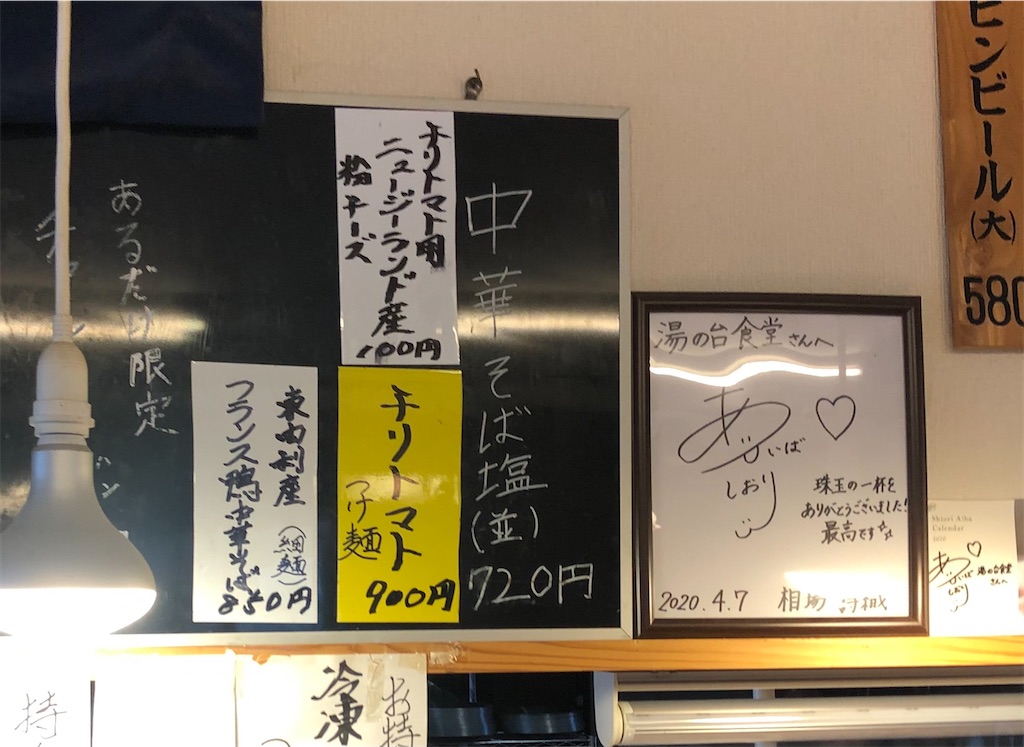 ビンビール(大)
580
中華そば塩(並)
720円
チリトマト用
ニュージーランド産
粉チーズ
100円
チリトマト
つけ麺
900円
東内利産
フランス鴨中華そば
(細麺)
850円
あるだけ限定
湯の台食堂さんへ
あいば
しおり
珠玉の一杯を
ありがとうございました!
最高です
2020.4.7 相場 詩織
Shiori Aiba
Calendar
2020
あいば
しおり
湯の台食堂
さんへ
お持
冷凍
持